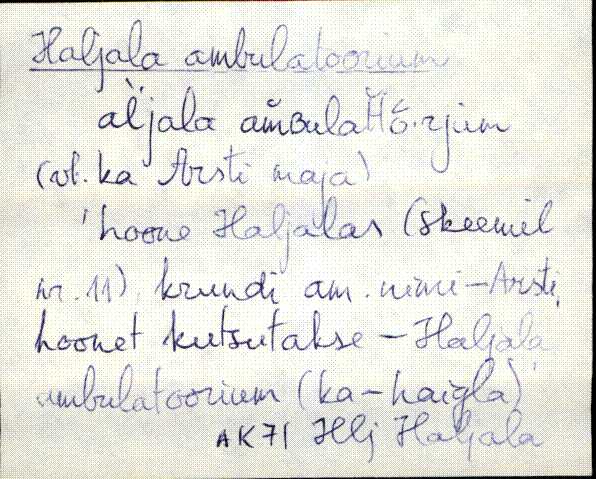 Haljala ambulatoorium
al̀jala am̆ʙulatt̆ŏ́.rjum
(vt. ka Arsti maja)
'hoone Haljalas (skeemil
nr. 11), krundi am. nimi - Arsti,
hoonet kutsutakse - Haljala
ambulatoorium (ka - haigla)'
AK71 Hlj Haljala